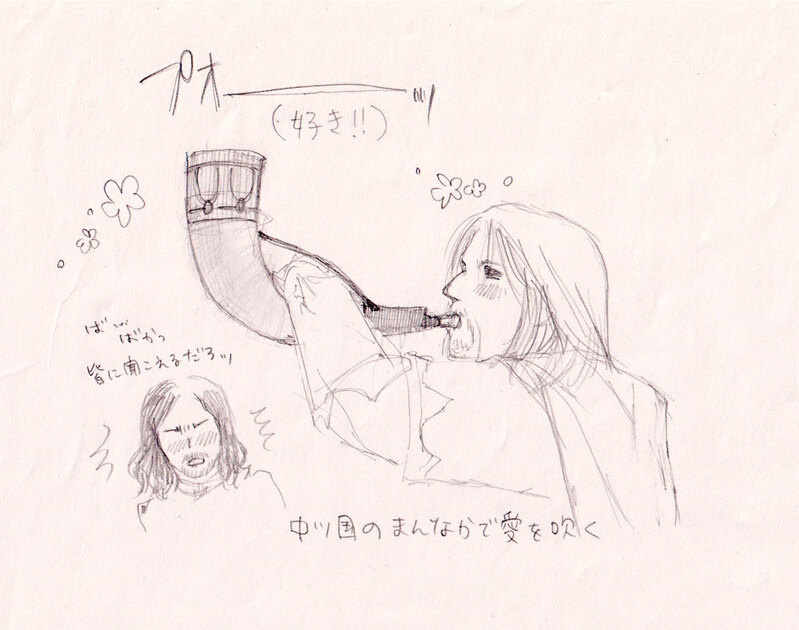 プオーーッ
(好き!!)
ば、ばかっ
皆に聞こえるだろッ
中ツ国のまんなかで愛を吹く